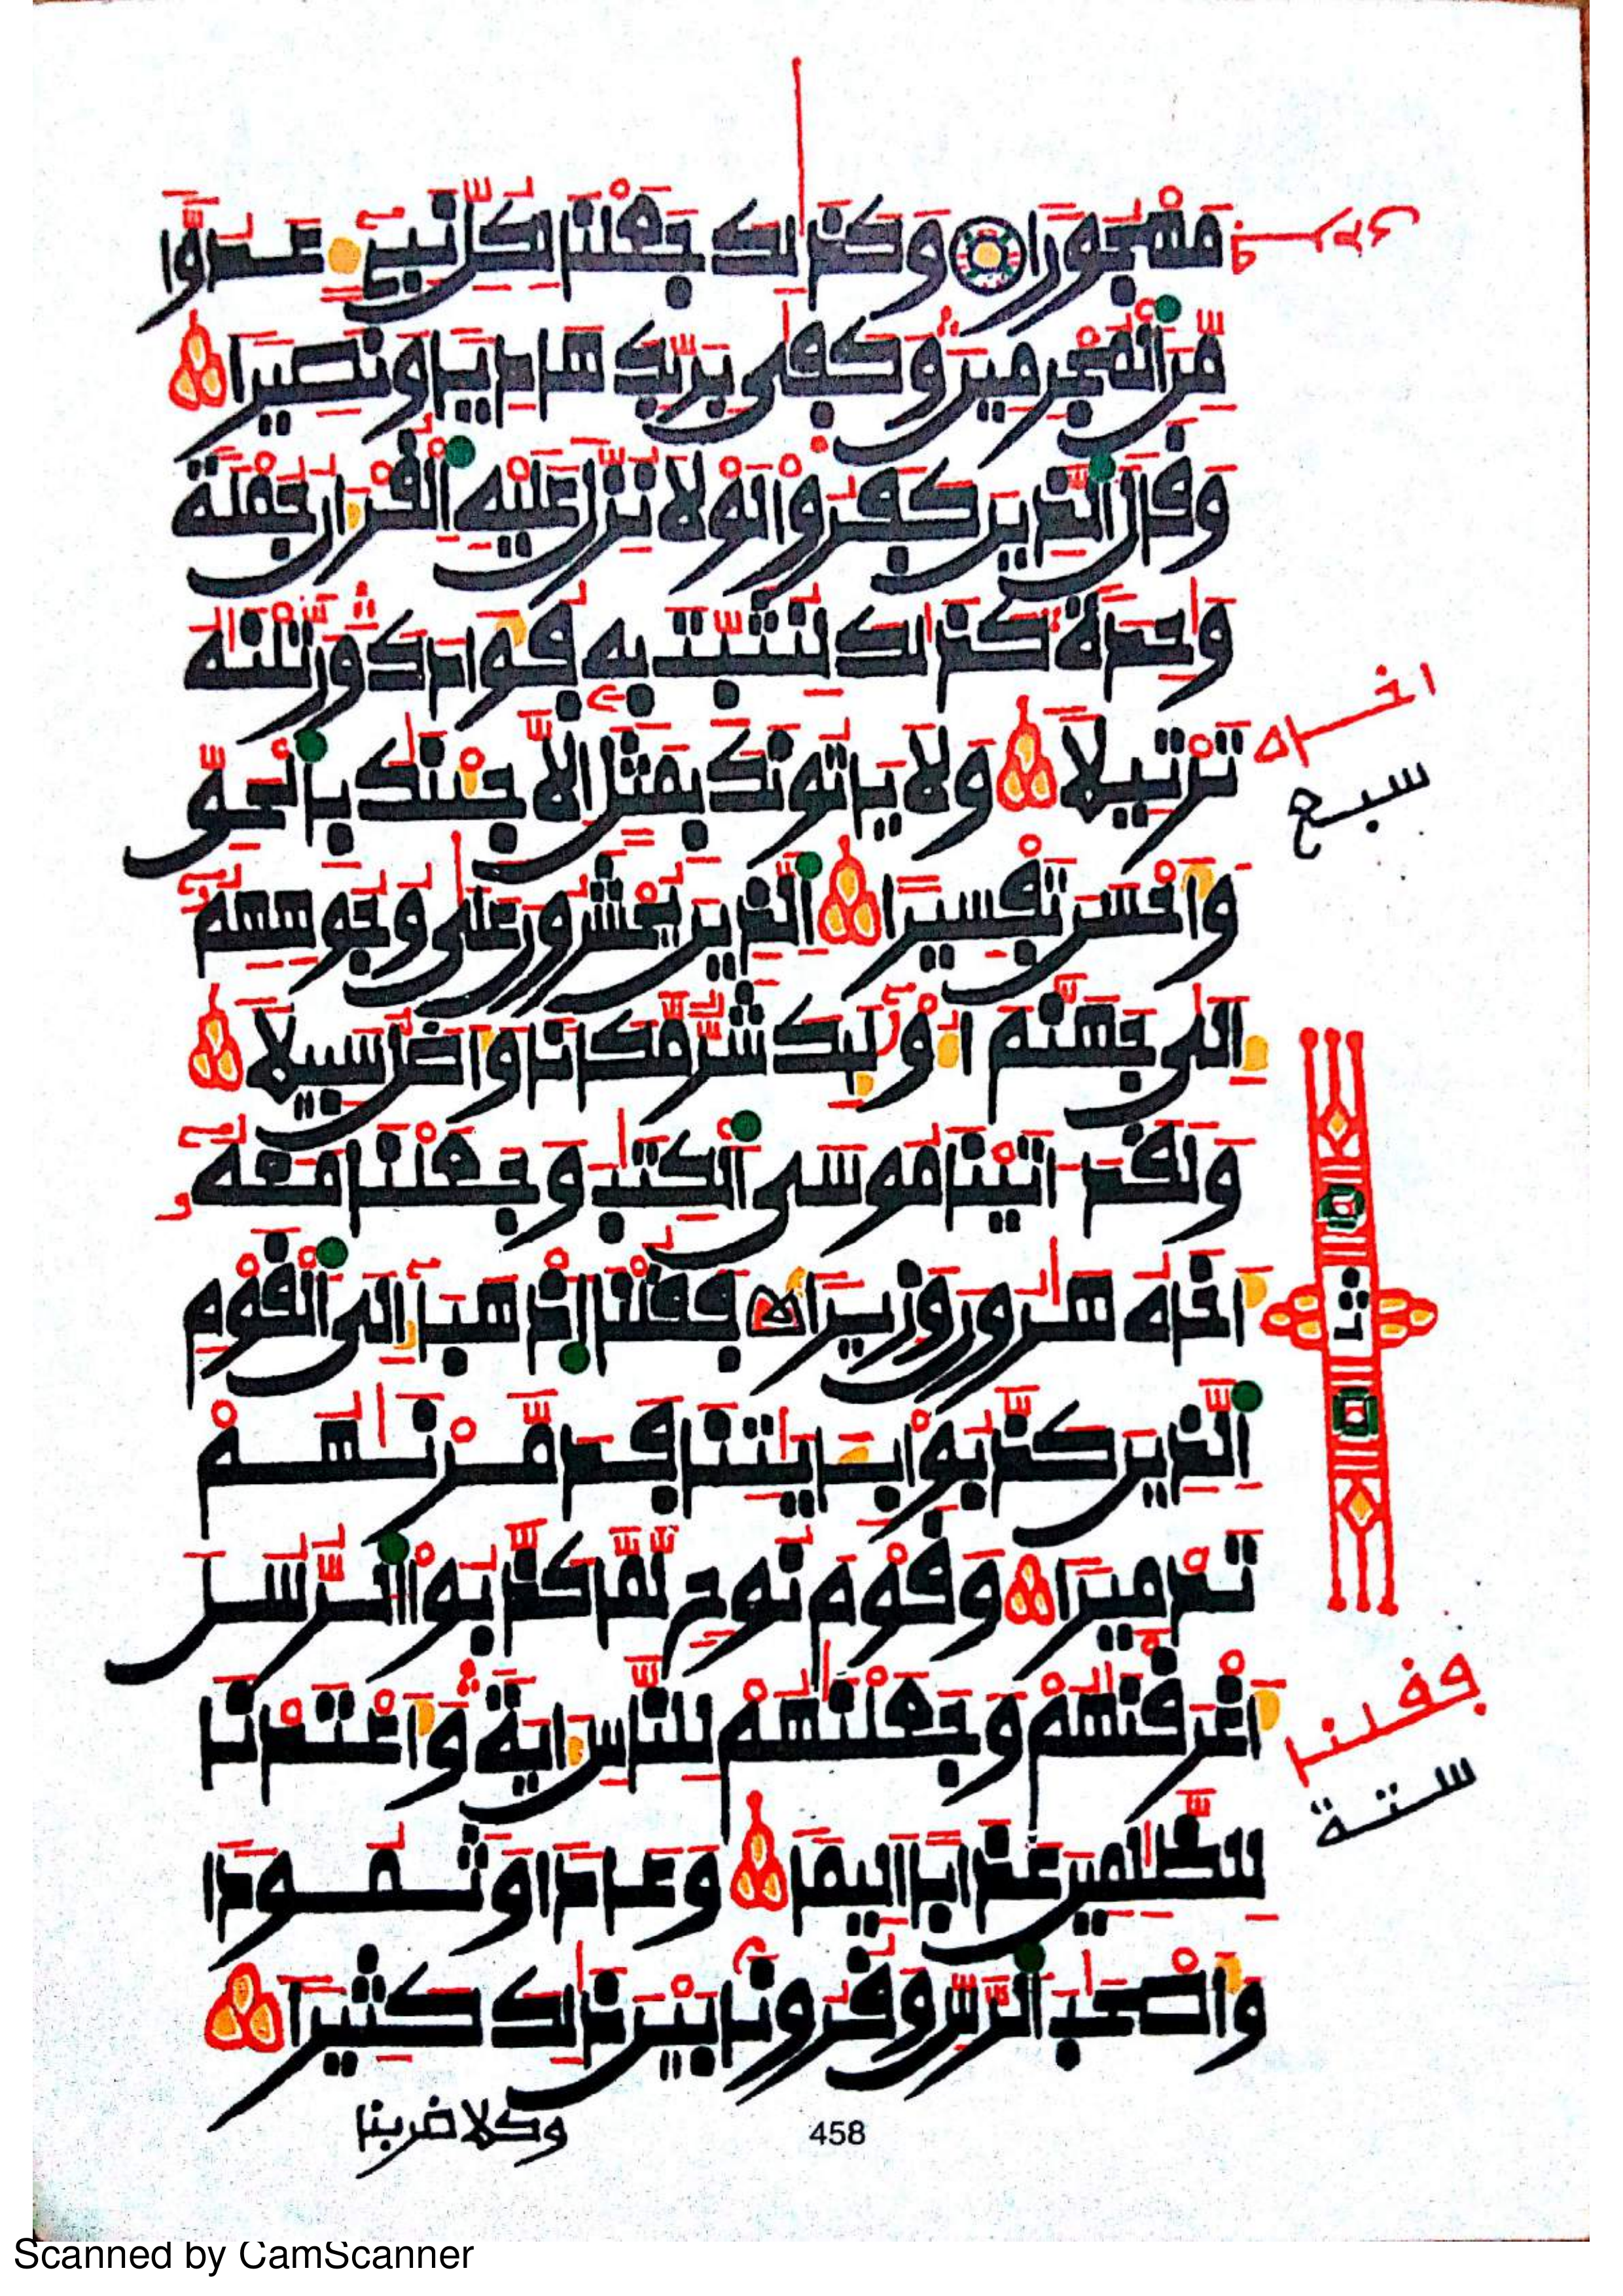 مَهْجُورًا وَكَذَٰلِكَ جَعَلْنَا لِكُلِّ نَبِيٓءٍ عَدُوّٗا
مِّنَ ٱلْمُجْرِمِينَ وَكَفَىٰ بِرَبِّكَ هَادِيٗا وَنَصِيرٗا
وَقَالَ ٱلذِينَ كَفَرُواْ لَوْلَا نُزِّلَ عَلَيْهِ ٱلْقُرْءَانُ جُمْلَةٗ
وَٰحِدَةٗ كَذَٰلِكَ لِنُثَبِّتَ بِهِۦ فُؤَادَكَ وَرَتَّلْنَٰهُ
تَرْتِيلٗا وَلَا يَاتُونَكَ بِمَثَلٍ إِلَّا جِئْنَٰكَ بِٱلْحَقِّ
اخراه
سبع
وَأَحْسَنَ تَفْسِيرًا ٱلذِينَ يُحْشَرُونَ عَلَىٰ وُجُوهِهِمُۥٓ
إِلَىٰ جَهَنَّمَ أُوْلَٰٓئِكَ شَرّٞ مَّكَانٗا وَأَضَلُّ سَبِيلٗا
وَلَقَدَ اٰتَيْنَا مُوسَى ٱلْكِتَٰبَ وَجَعَلْنَا مَعَهُۥٓ
أَخَاهُ هَٰرُونَ وَزِيرٗا فَقُلْنَا ٱذْهَبَآ إِلَى ٱلْقَوْمِ
ٱلذِينَ كَذَّبُواْ بِـَٔايَٰتِنَا فَدَمَّرْنَٰهُمْ
تَدْمِيرٗا وَقَوْمَ نُوحٖ لَّمَّا كَذَّبُواْ ٱلرُّسُلَ
أَغْرَقْنَٰهُمْ وَجَعَلْنَٰهُمْ لِلنَّاسِ ءَايَةٗ وَأَعْتَدْنَا
فقلنا
ستة
لِلظَّٰلِمِينَ عَذَابًا أَلِيمٗا وَعَادٗا وَثَمُودٗا
وَأَصْحَٰبَ ٱلرَّسِّ وَقُرُونَۢا بَيْنَ ذَٰلِكَ كَثِيرٗا
وكلا ضربنا
458
Scanned by CamScanner